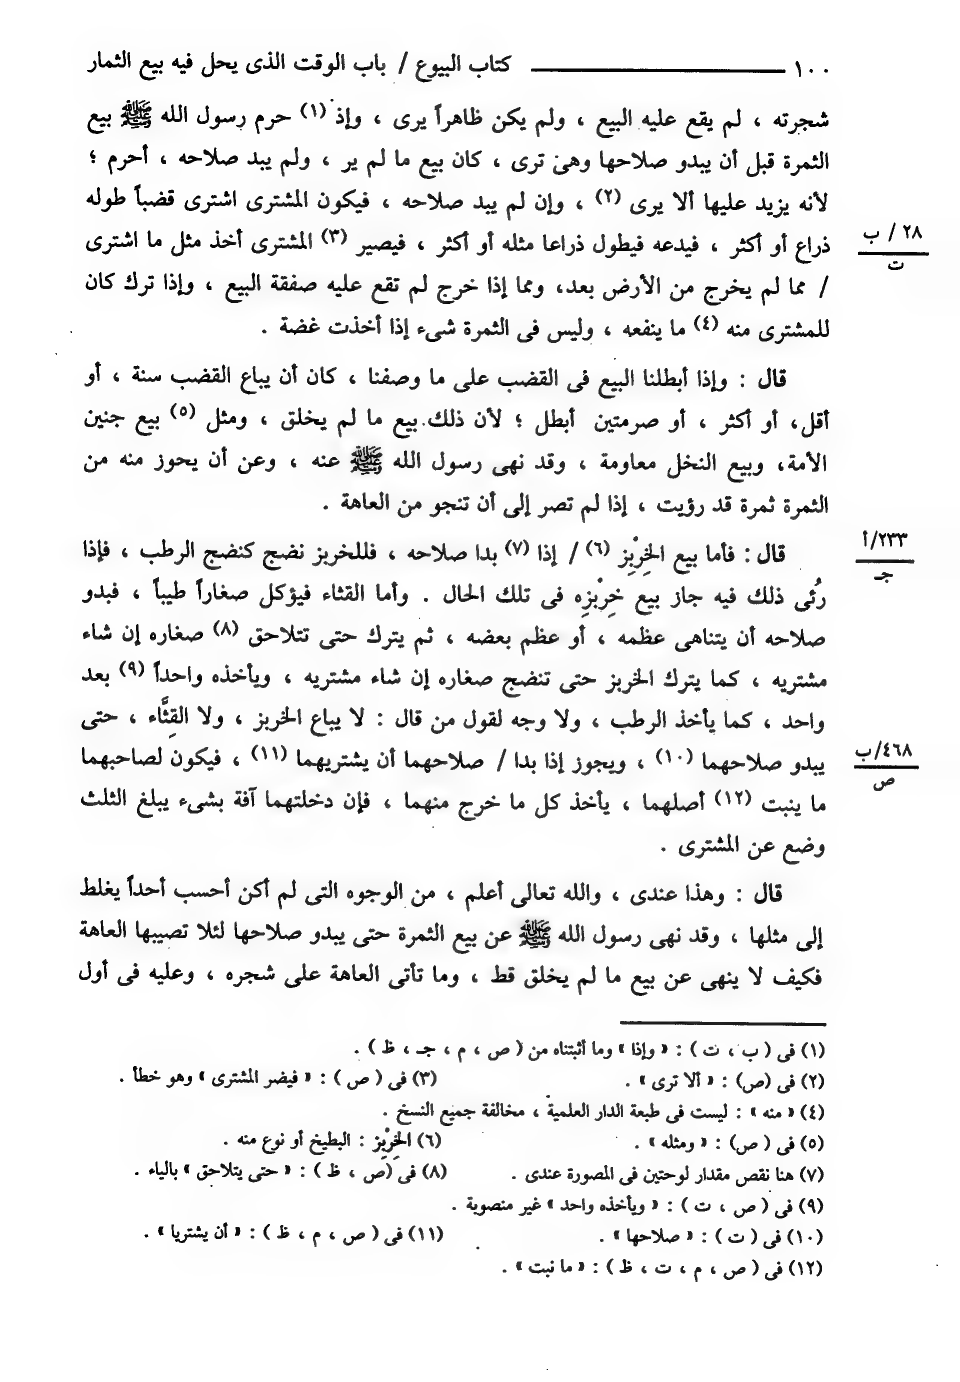 ١٠٠ كتاب البيوع / باب الوقت الذى يحل فيه بيع الثمار
شجرته ، لم يقع عليه البيع ، ولم يكن ظاهراً يرى ، وإذ (١) حرم رسول الله ﷺ بيع
الثمرة قبل أن يبدو صلاحها وهى ترى ، كان بيع ما لم ير ، ولم يبد صلاحه ، أحرم ؛
لأنه يزيد عليها ألا يرى (٢) ، وإن لم يبد صلاحه ، فيكون المشترى اشترى قضباً طوله
ذراع أو أكثر ، فيدعه فيطول ذراعا مثله أو أكثر ، فيصير (٣) المشترى أخذ مثل ما اشترى
٢٨ / ب
ت
/ مما لم يخرج من الأرض بعد، ومما إذا خرج لم تقع عليه صفقة البيع ، وإذا ترك كان
للمشترى منه (٤) ما ينفعه ، وليس فى الثمرة شىء إذا أخذت غضة .
قال : وإذا أبطلنا البيع فى القضب على ما وصفنا ، كان أن يباع القضب سنة ، أو
أقل، أو أكثر ، أو صرمتين أبطل ؛ لأن ذلك بيع ما لم يخلق ، ومثل (٥) بيع جنين
الأمة، وبيع النخل معاومة ، وقد نهى رسول الله ﷺ عنه ، وعن أن يحوز منه من
الثمرة ثمرة قد رؤيت ، إذا لم تصر إلى أن تنجو من العاهة .
قال : فأما بيع الخِرْبِز (٦) / إذا (٧) بدا صلاحه ، فللخربز نضج كنضج الرطب ، فإذا
٢٣٣/أ
جـ
رُئى ذلك فيه جاز بيع خِرْبزِه فى تلك الحال . وأما القثاء فيؤكل صغاراً طيباً ، فبدو
صلاحه أن يتناهى عظمه ، أو عظم بعضه ، ثم يترك حتى تتلاحق (٨) صغاره إن شاء
مشتريه ، كما يترك الخربز حتى تنضج صغاره إن شاء مشتريه ، ويأخذه واحداً (٩) بعد
واحد ، كما يأخذ الرطب ، ولا وجه لقول من قال : لا يباع الخربز ، ولا القِثَّاء ، حتى
يبدو صلاحهما (١٠) ، ويجوز إذا بدا / صلاحهما أن يشتريهما (١١) ، فيكون لصاحبهما
٤٦٨/ب
ص
ما ينبت (١٢) أصلهما ، يأخذ كل ما خرج منهما ، فإن دخلتهما آفة بشىء يبلغ الثلث
وضع عن المشترى .
قال : وهذا عندى ، والله تعالى أعلم ، من الوجوه التى لم أكن أحسب أحداً يغلط
إلى مثلها ، وقد نهى رسول الله ﷺ عن بيع الثمرة حتى يبدو صلاحها لئلا تصيبها العاهة
فكيف لا ينهى عن بيع ما لم يخلق قط ، وما تأتى العاهة على شجره ، وعليه فى أول
(١) فى ( ب ، ت ) : « وإذا » وما أثبتناه من ( ص ، م ، جـ ، ظ ) .
(٢) فى (ص) : « ألا ترى » . (٣) فى ( ص ) : « فيضر المشترى » وهو خطأ .
(٤) « منه » : ليست فى طبعة الدار العلمية ، مخالفة جميع النسخ .
(٥) فى ( ص) : « ومثله » . (٦) الخِرْبِز : البطيخ أو نوع منه .
(٧) هنا نقص مقدار لوحتين فى المصورة عندى . (٨) فى (ص ، ظ ) : « حتى يتلاحق » بالياء .
(٩) فى ( ص ، ت ) : « ويأخذه واحد » غير منصوبة .
(١٠) فى ( ت ) : « صلاحها » . (١١) فى ( ص ، م ، ظ ) : « أن يشتريا » .
(١٢) فى ( ص ، م ، ت ، ظ ) : « ما نبت » .